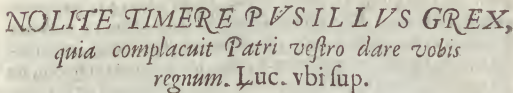 NOLITE TIMERE PVSILLVS GREX,
quia complacuit Patri veſtro dare vobis
regnum. Luc. vbi ſup.